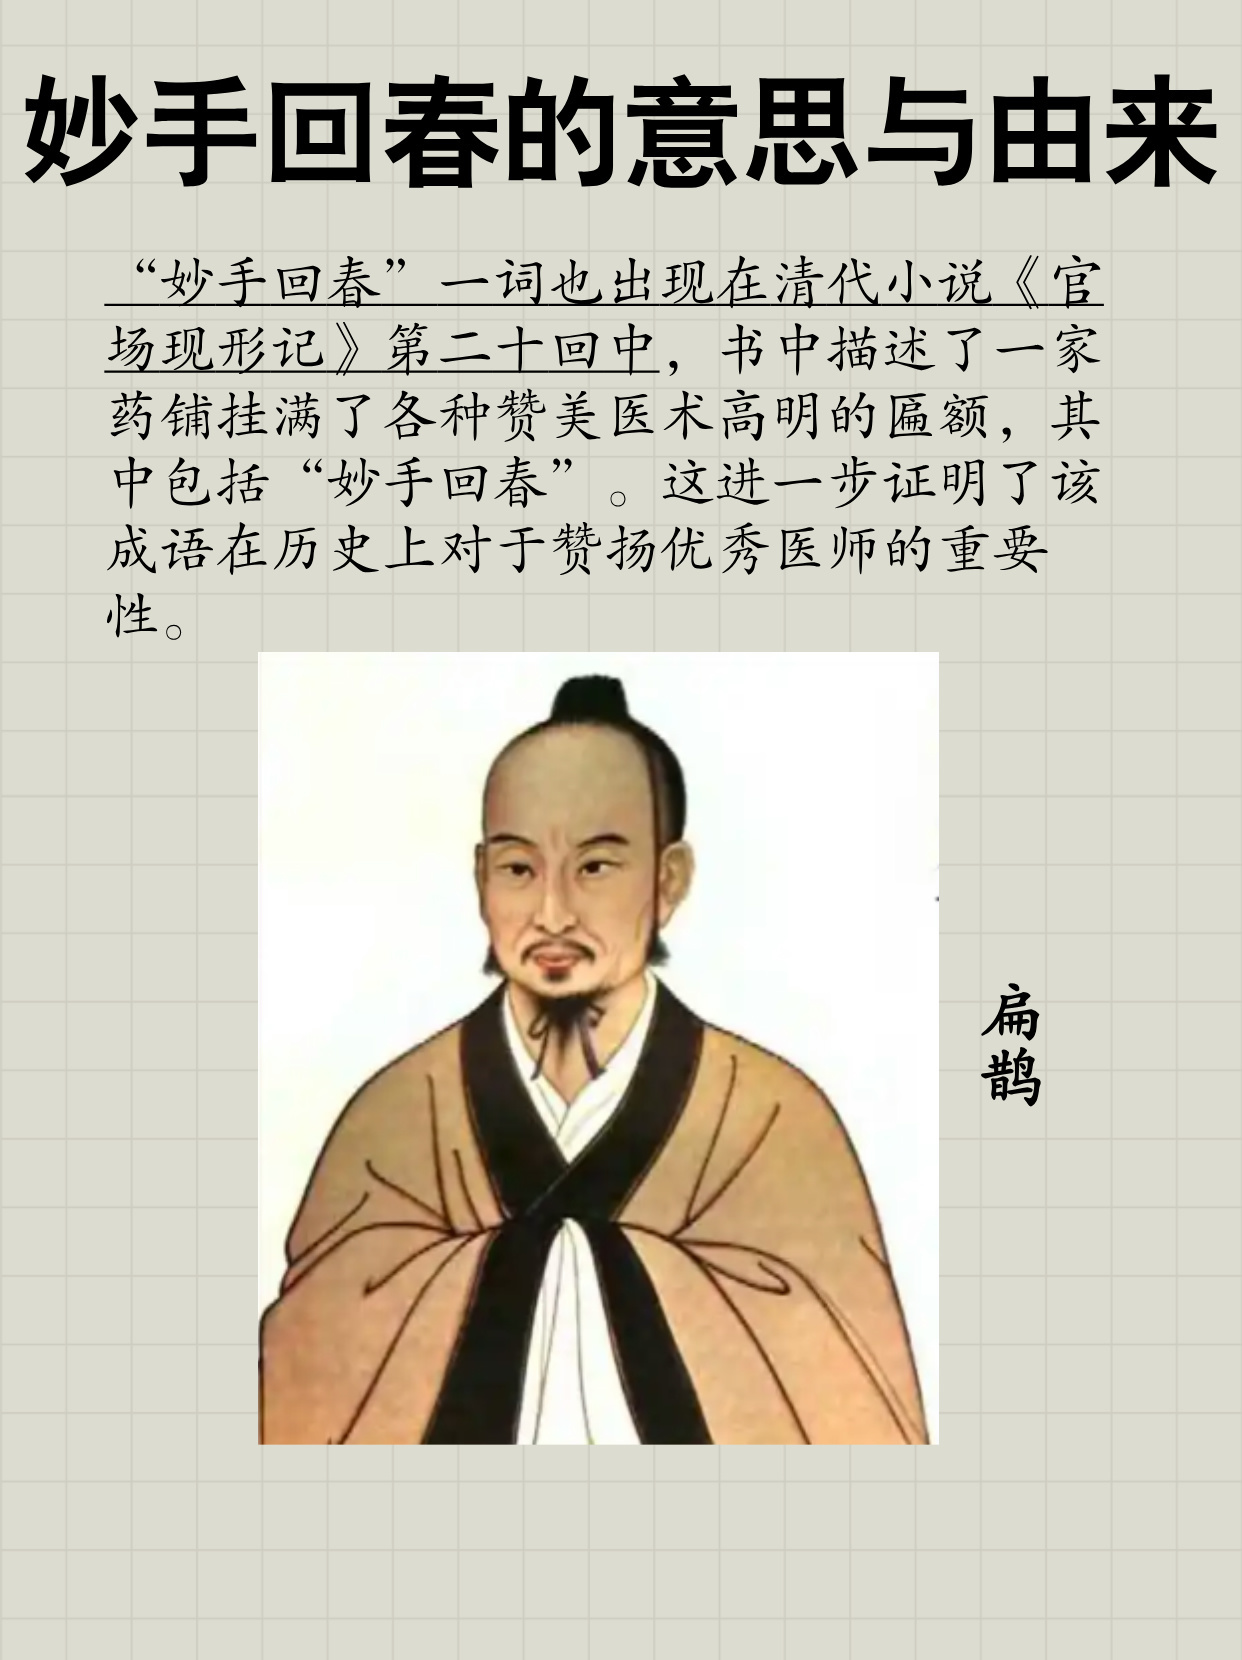 妙手回春的意思与由来
“妙手回春”一词也出现在清代小说《官
场现形记》第二十回中，书中描述了一家
药铺挂满了各种赞美医术高明的匾额，其
中包括“妙手回春”。这进一步证明了该
成语在历史上对于赞扬优秀医师的重要
性。
扁鹊